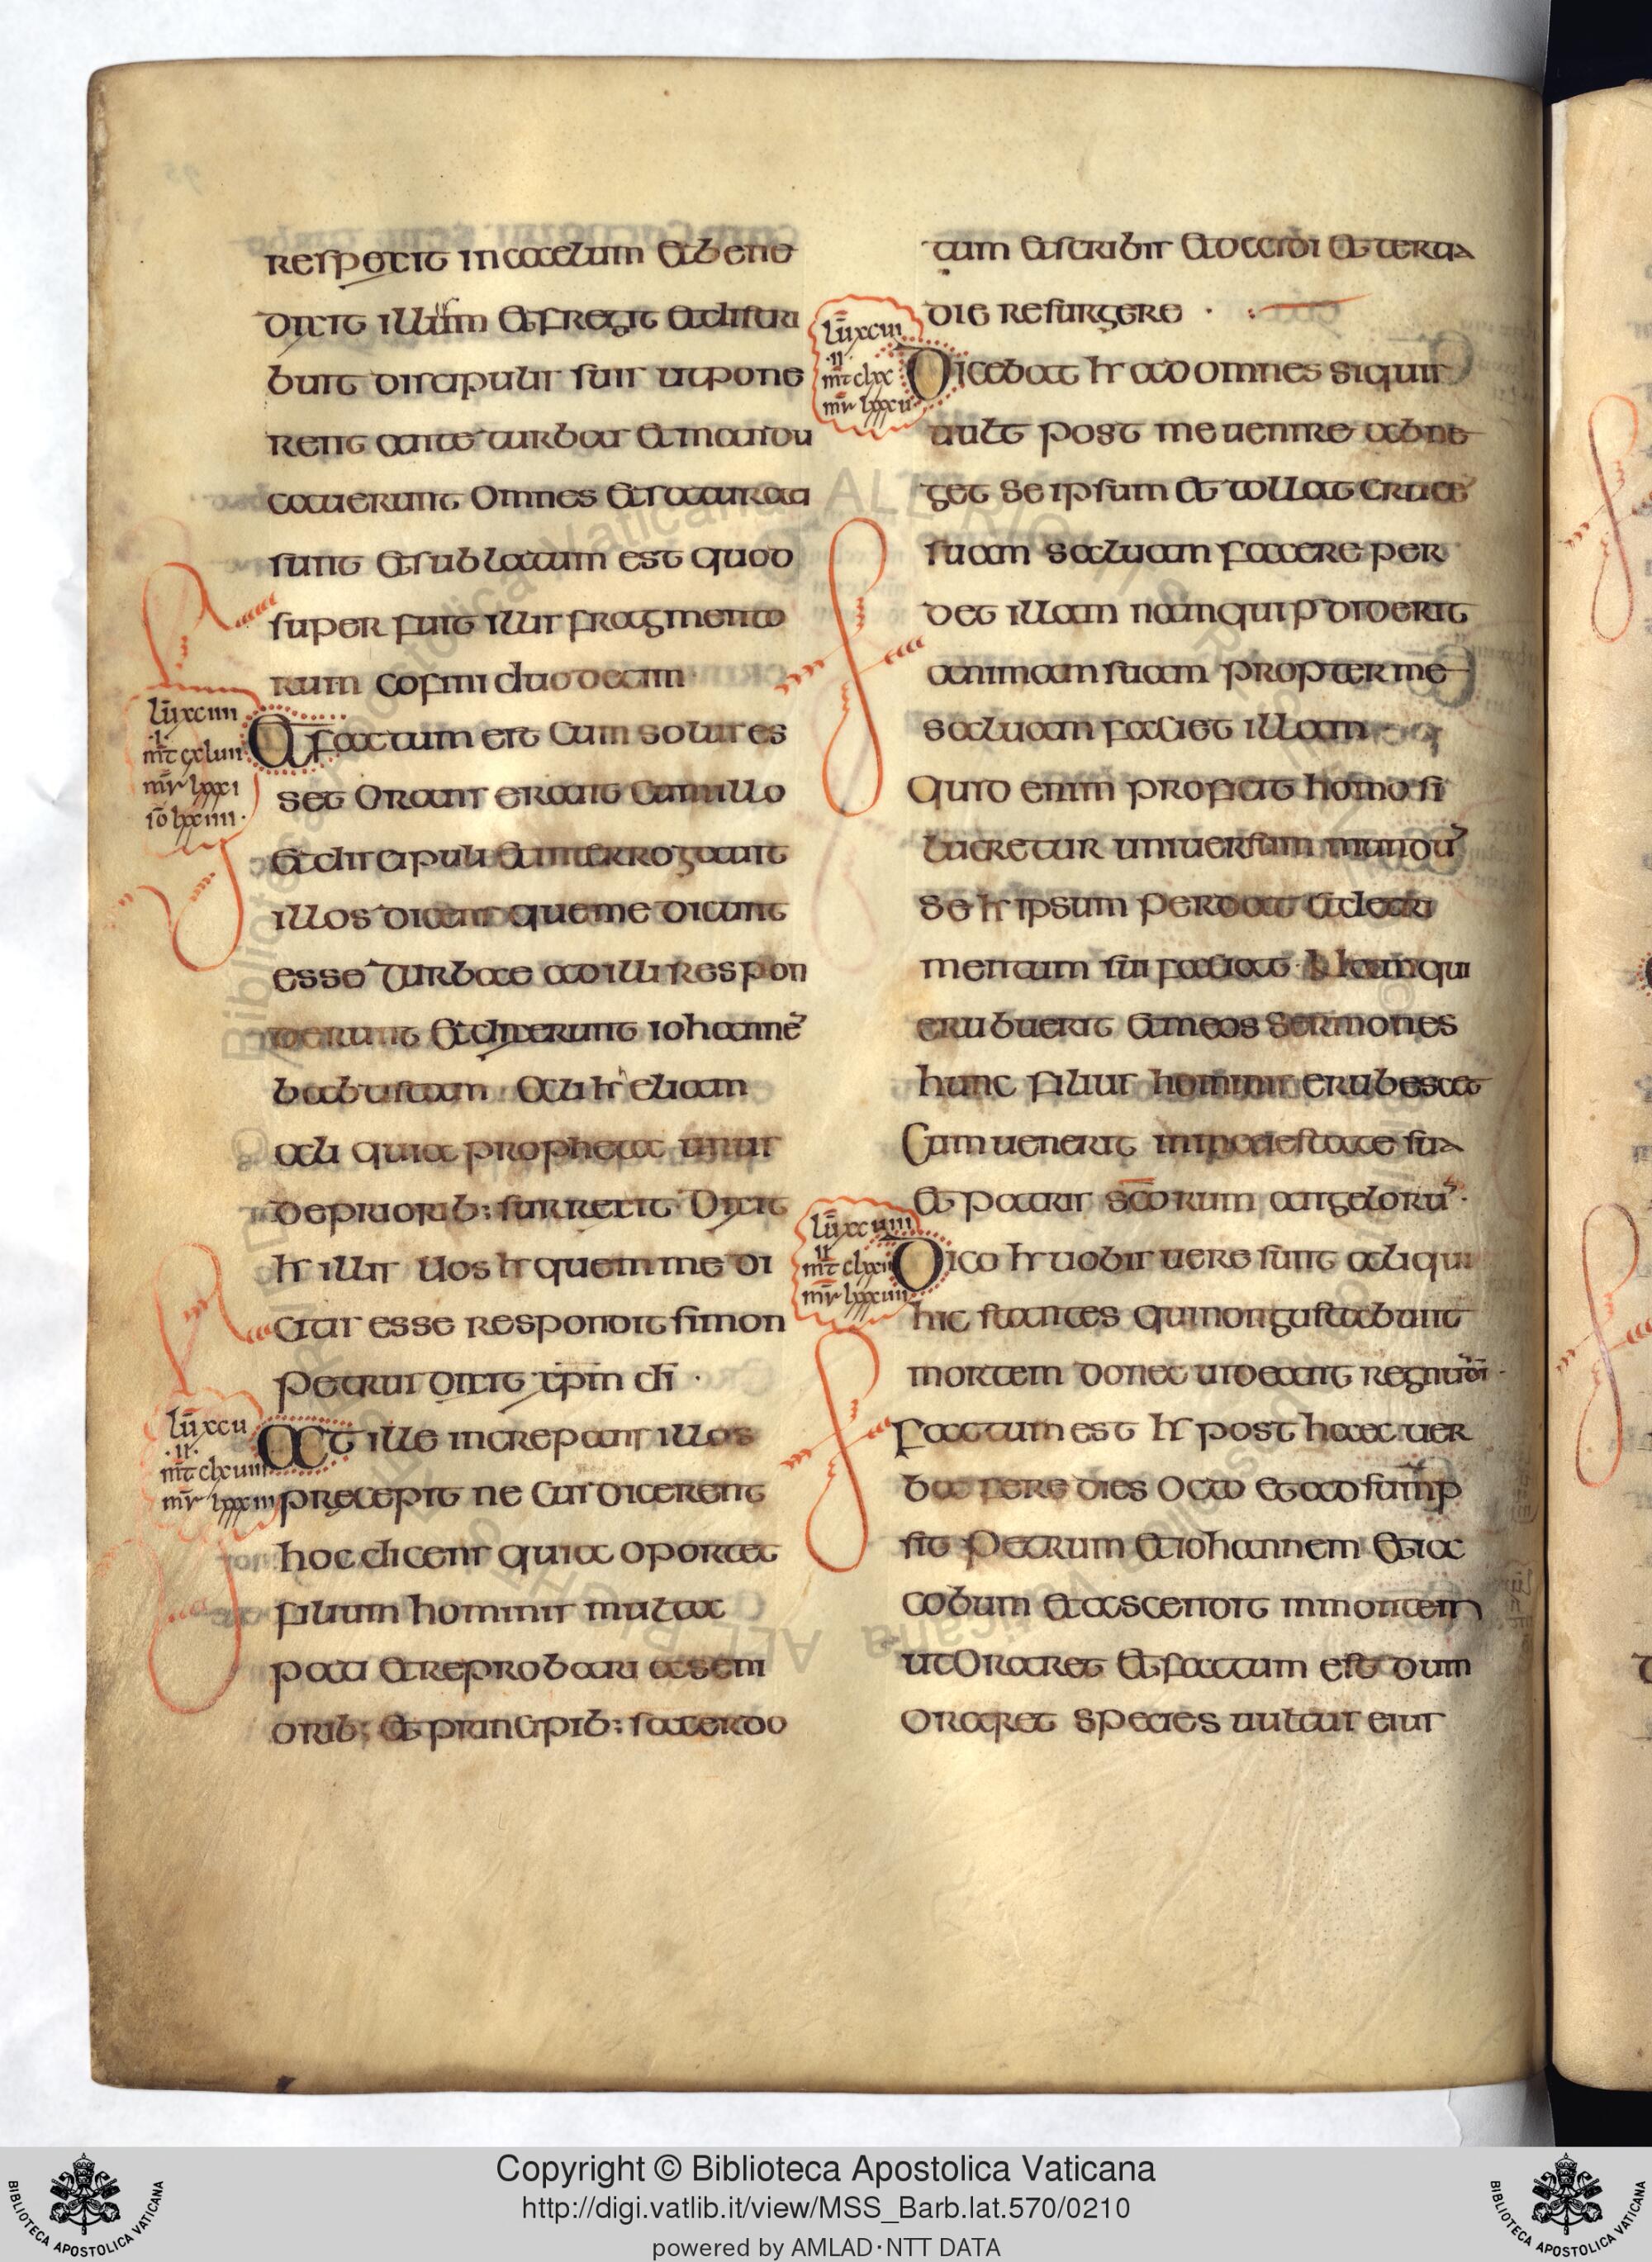 respexit in caelum et bene
dixit illis et fregit et distri
buit discipulis suis ut pone
rent ante turbas et mandu
cauerunt omnes et saturati
sunt et sublatum est quod
super fuit illis fragmento
rum cofini duodecim
lū xciiii
mr̄ lxxxi
io lxxiiii
Et factum est cum solus es
set orans erant cum illo
et discipuli et interrogauit
illos dicens quem me dicunt
esse turbae ad illi respon
derunt et dixerunt iohannē
babtistam alii hr eliam
alii quia propheta unus
de priorib; surrexit dixit
hr illis uos hr quem me di
citis esse respondit simon
petrus dixit xp̄m dī
lū xcu
.ii.
mr̄ lxxxiii
At ille increpans illos
precepit ne cui dicerent
hoc dicens quia oportet
filium hominis multa
pati et reprobari a sem
orib; et principib; sacerdo
tum et scribis et occidi et tertia
die resurgere
lū xcui
.ii.
mt̄ clxx
mr̄ lxxxu
Dicebat hr ad omnes si quis
uult post me uenire abne
get se ipsum et tollat crucē
suam saluam facere per
det illam nam qui pdiderit
animam suam propter me
saluam faciet illam
Quid enim proficit homo si
lucretur uniuersum mundū
se hr ipsum perdat et detri
mentum sui faciat nam qui
erubuerit et meos sermones
hunc filius hominis erubescet
Cum uenerit in maiestate sua
et patris scōrum angelorū
lū xcuiii
ii
mt̄ clxxii
mr̄ lxxxuiii
Dico hr uobis uere sunt aliqui
hic stantes qui non gustabunt
mortem donec uideant regnū dī
Factum est hr post haec uer
ba fere dies octo et adsump
sit petrum et iohannem et ia
cobum et ascendit in montem
ut oraret et factum est dum
oraret species uultus eius
Copyright © Biblioteca Apostolica Vaticana
http://digi.vatlib.it/view/MSS_Barb.lat.570/0210
powered by AMLAD·NTT DATA
BIBLIOTECA APOSTOLICA VATICANA
BIBLIOTECA APOSTOLICA VATICANA